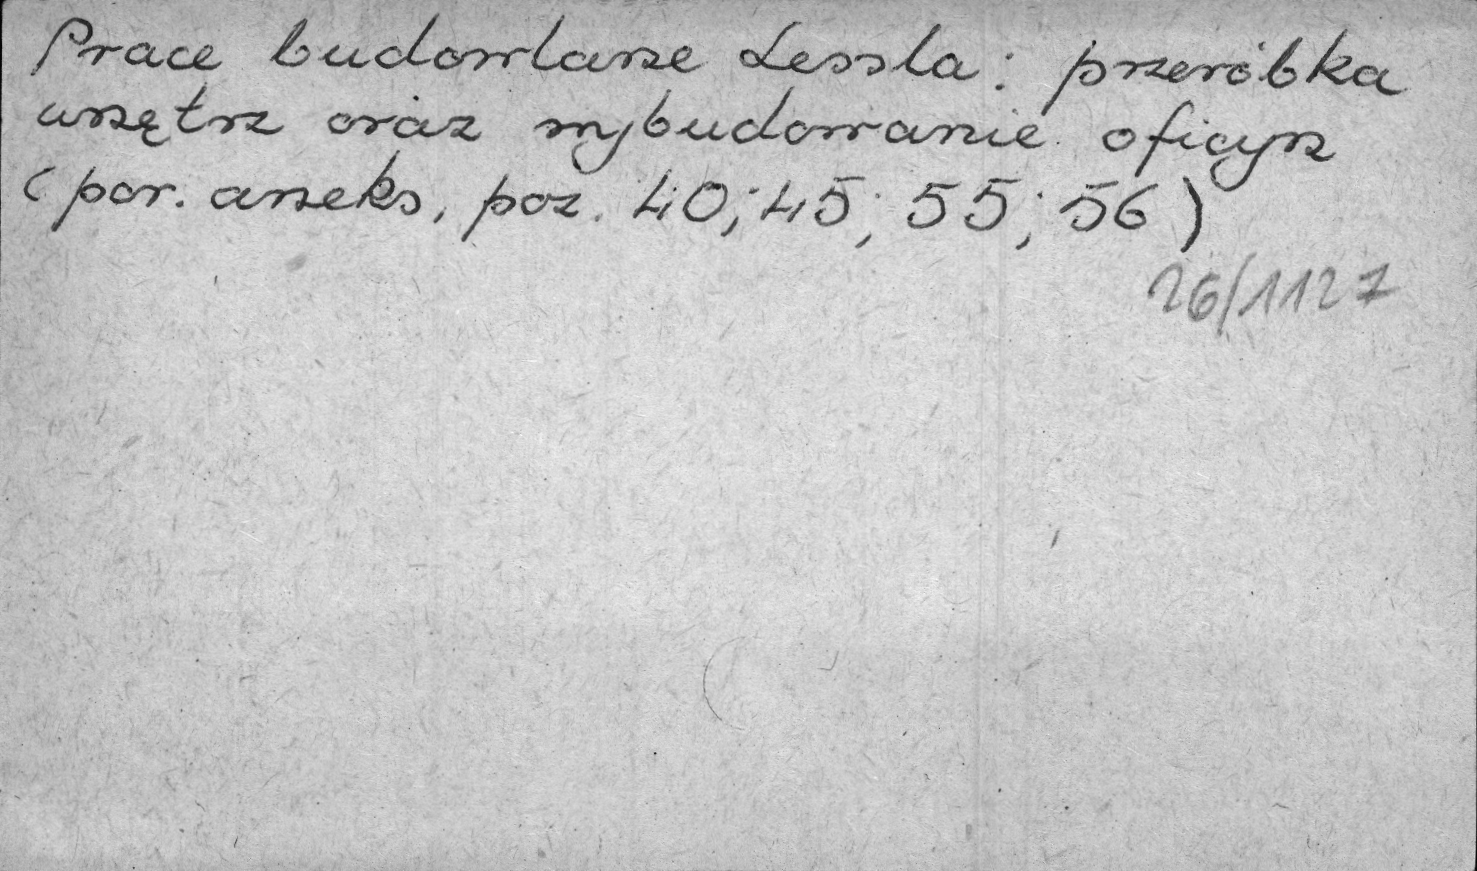 Prace budowlane Lessla: przeróbka
wnętrz oraz wybudowanie oficyn
(por. aneks, poz. 40; 45; 55; 56)
26/1127